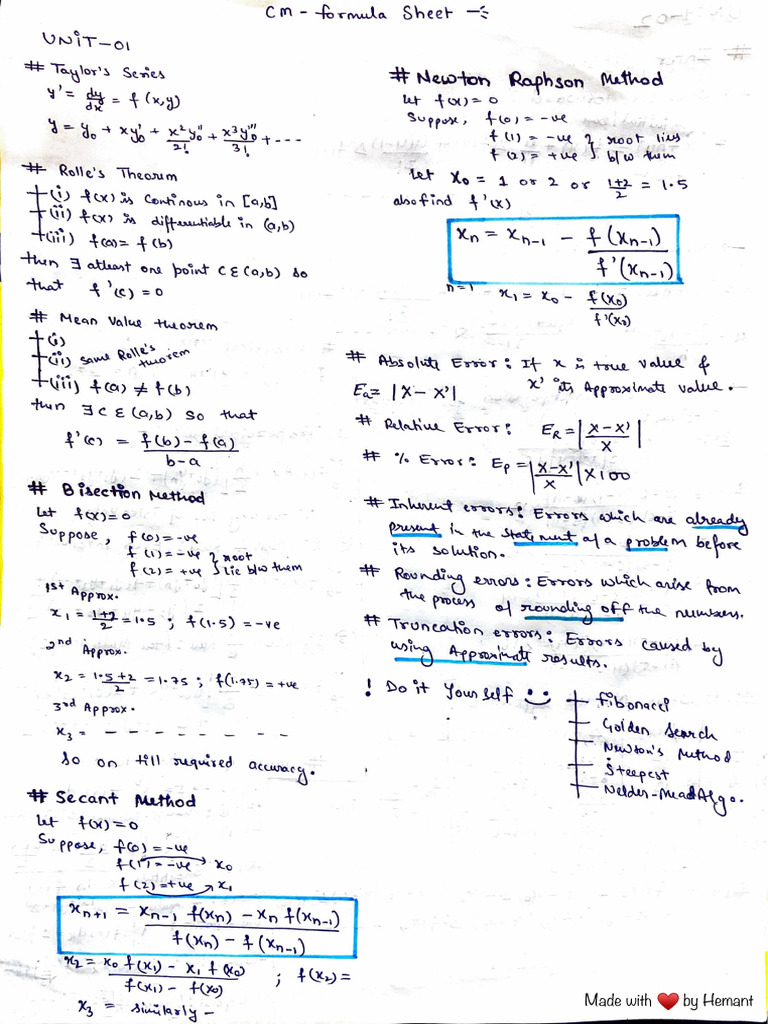 CM - formula Sheet
UNIT-01
# Taylor's Series
y' = dy/dx = f(x,y)
y = y₀ + xy₀' + x²y₀''/2! + x³y₀'''/3! + ----
# Rolle's Theorem
(i) f(x) is continous in [a,b]
(ii) f(x) is differentiable in (a,b)
(iii) f(a) = f(b)
then ∃ atleast one point C ∈ (a,b) so
that f'(c) = 0
# Mean Value theorem
(i)
(ii) same Rolle's theorem
(iii) f(a) ≠ f(b)
then ∃ C ∈ (a,b) so that
f'(c) = f(b) - f(a) / b-a
# Bisection Method
let f(x) = 0
Suppose, f(0) = -ve
f(1) = -ve } root
f(2) = +ve } lie b/w them
1st Approx.
x₁ = 1+2/2 = 1.5 ; f(1.5) = -ve
2nd Approx.
x₂ = 1.5+2/2 = 1.75 ; f(1.75) = +ve
3rd Approx.
x₃ = - - - - - - - -
So on till required accuracy.
# Secant Method
let f(x) = 0
Suppose, f(0) = -ve
f(1) = -ve → x₀
f(2) = +ve → x₁
xₙ₊₁ = xₙ₋₁ f(xₙ) - xₙ f(xₙ₋₁) / f(xₙ) - f(xₙ₋₁)
x₂ = x₀ f(x₁) - x₁ f(x₀) / f(x₁) - f(x₀) ; f(x₂) =
x₃ = similarly -
# Newton Raphson Method
let f(x) = 0
Suppose, f(0) = -ve
f(1) = -ve } root lies
f(2) = +ve } b/w them
let x₀ = 1 or 2 or 1+2/2 = 1.5
also find f'(x)
xₙ = xₙ₋₁ - f(xₙ₋₁) / f'(xₙ₋₁)
n=1 - x₁ = x₀ - f(x₀) / f'(x₀)
# Absolute Error : If x is true value &
x' its Approximate value.
Eₐ = |x - x'|
# Relative Error : E_R = |x-x'/x|
# % Error : E_P = |x-x'/x| × 100
# Inherent errors : Errors which are already
present in the statement of a problem before
its solution.
# Rounding errors : Errors which arise from
the process of rounding off the numbers.
# Truncation errors : Errors caused by
using Approximate results.
! Do it Yourself
Fibonacci
Golden Search
Newton's Method
Steepest
Nelder-Mead Algo.
Made with ❤ by Hemant